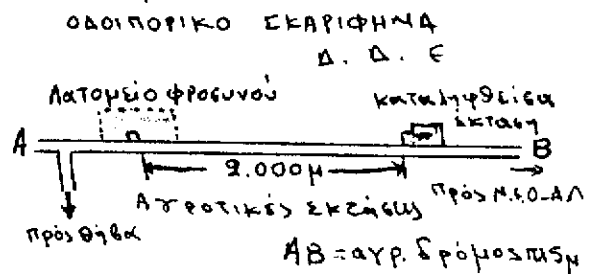 ΟΔΟΙΠΟΡΙΚΟ ΣΚΑΡΙΦΗΜΑ
Δ. Δ. Ε
Λατομείο Φροσυνού
καταληφθείσα
έκταση
Α
Β
2.000μ
Αγροτικές Εκτάσεις
πρός Ν.Ε.Ο-ΑΛ
πρός Θήβα
ΑΒ = αγρ. δρόμος π 15μ